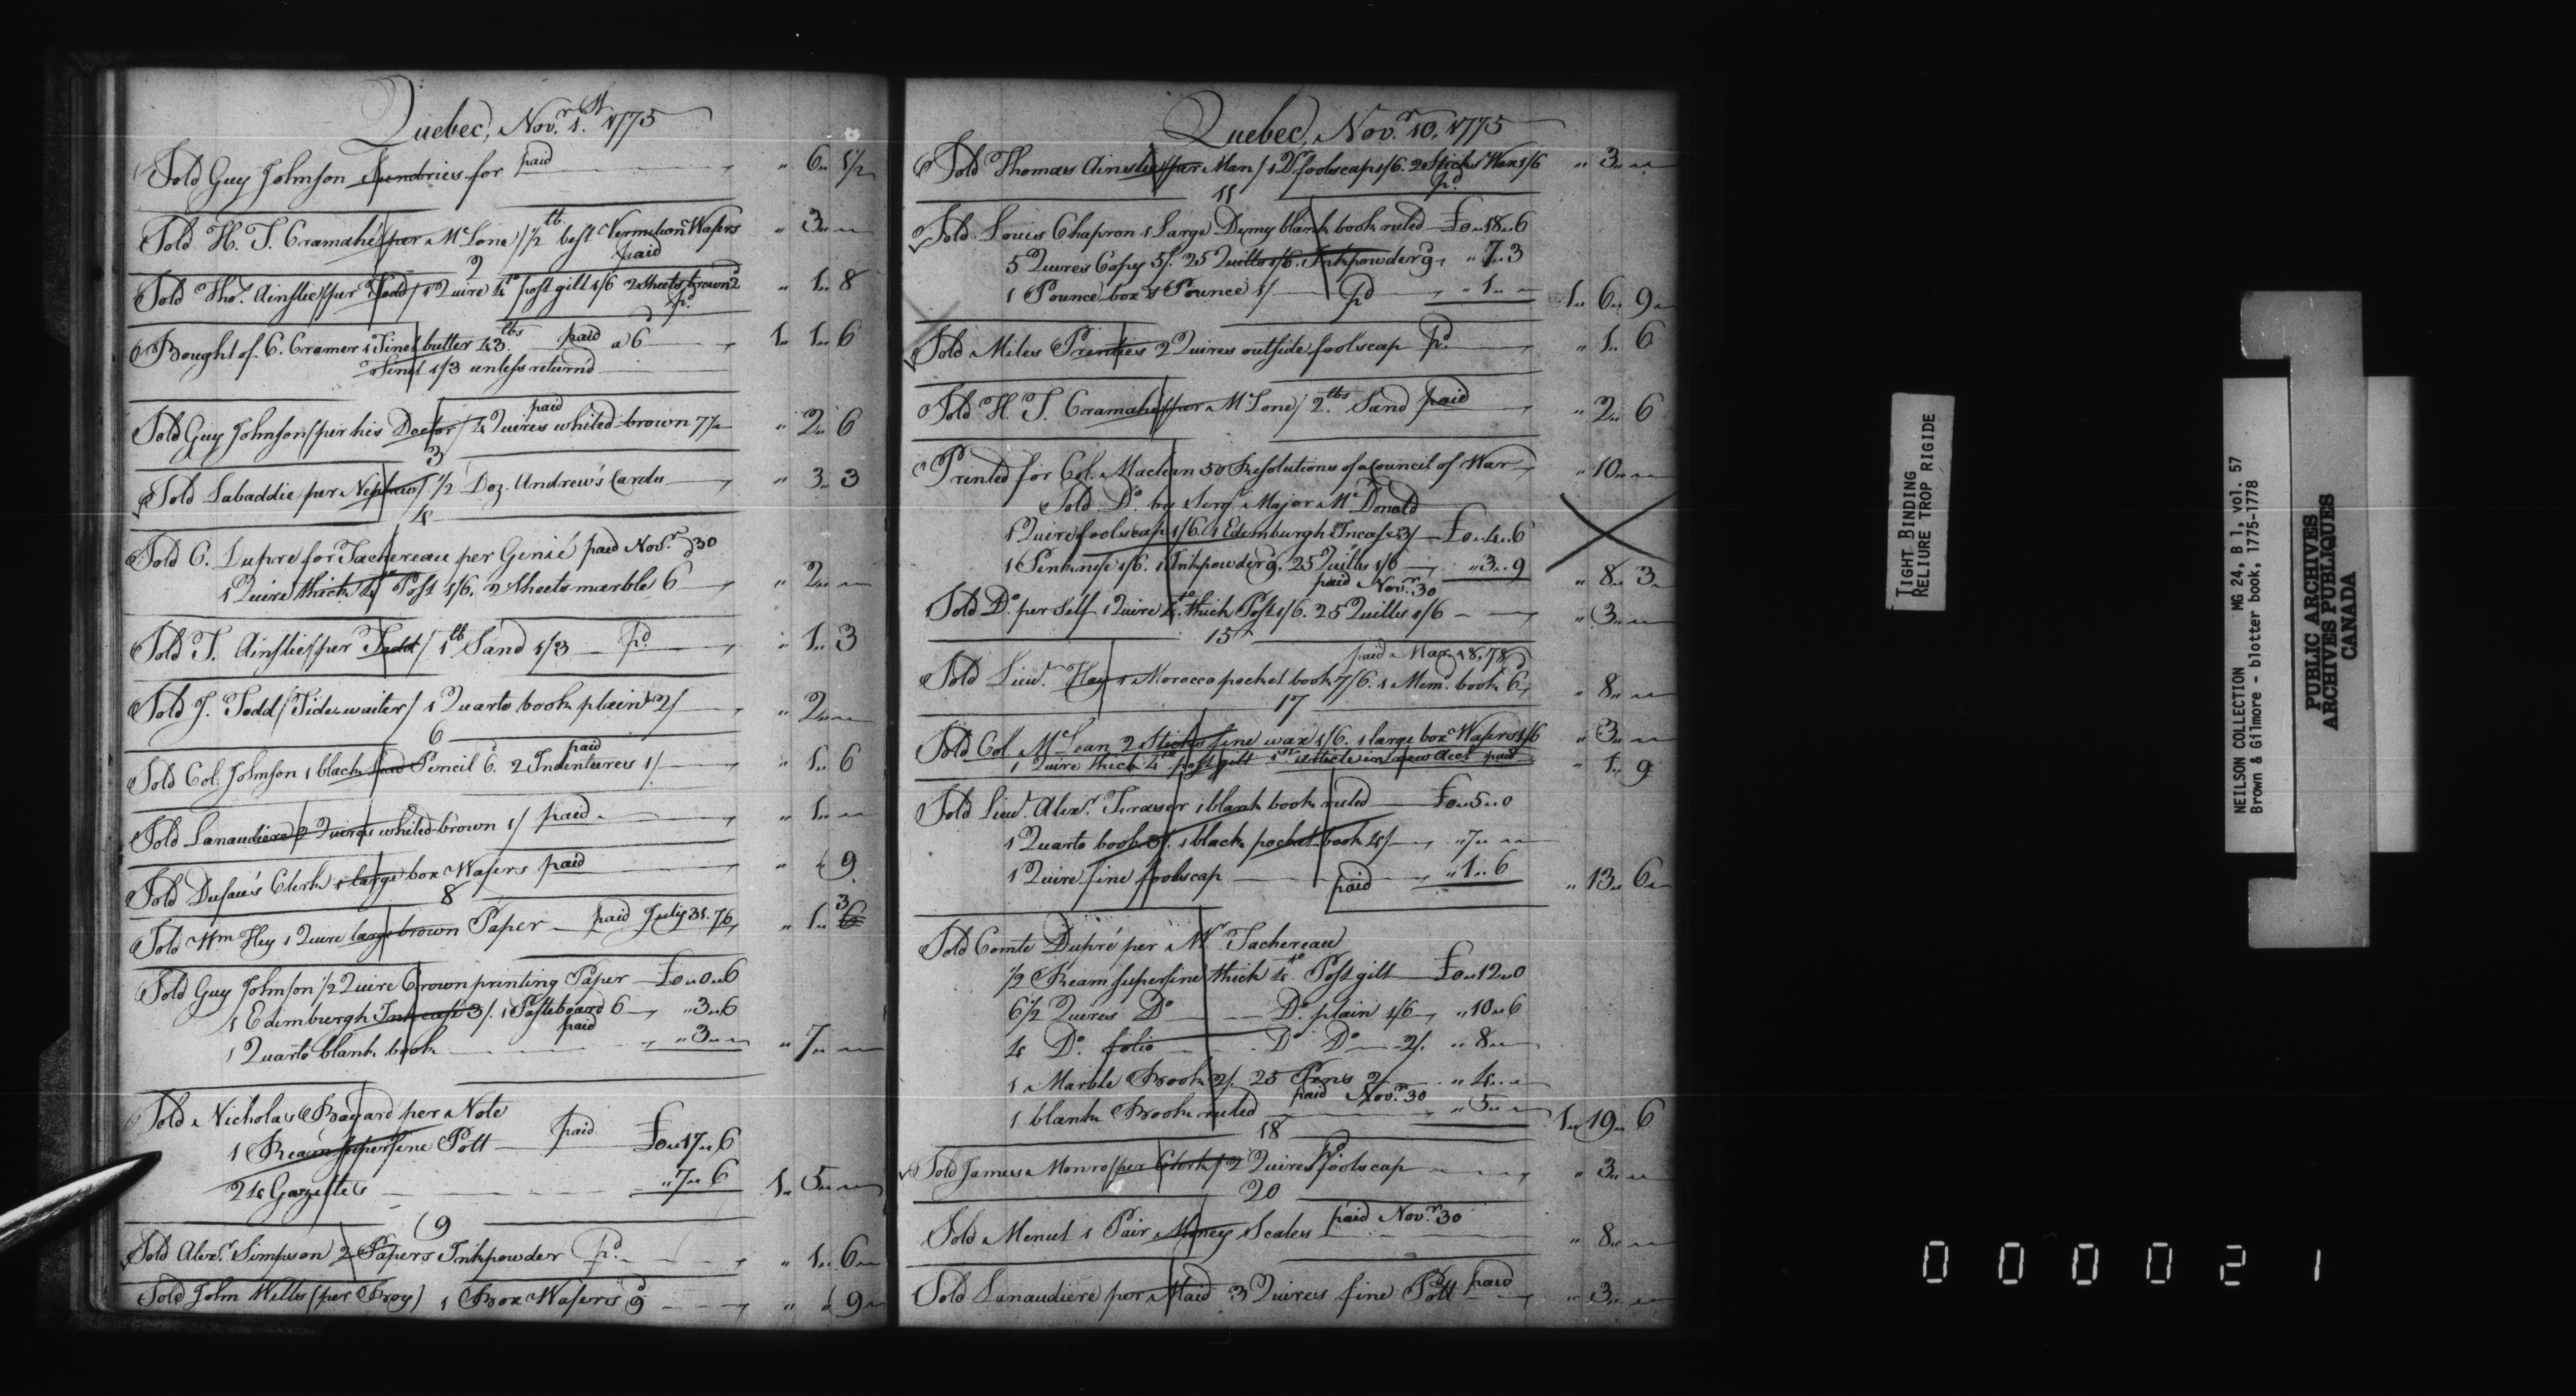 Quebec, Nov.r 1.st 1775
Sold Guy Johnson Sundries for paid " 6 " 1½
Sold H. T. Cramahé /per McLone/ ½ lb best Vermilion Wafers " 3 " "
paid
2
Sold Thos. Ainslie /per Todd/ 1 Quire 4to post gilt 1/6 2 Sheets brown 2d " 1 " 8
pd.
Bought of C. Cramer 1 Tinet butter 43 lbs paid a 6 1 " 1 " 6
Tinet 1/3 unless return'd
Sold Guy Johnson /per his Doctor/ 4 Quires whited-brown 7½ " 2 " 6
paid
3
Sold Labaddie per Nephew/ ½ Doz. Andrew's Cards " 3 " 3
4
Sold C. Dupre for Tachereau per Genié paid Nov.r 30
1 Quire thick 4to Post 1/6. 2 Sheets marble 6 " 2 " "
Sold T. Ainslie /per Todd/ 1 lb Sand 1/3 pd. " 1 " 3
Sold J. Todd /Tide waiter/ 1 Quarto book plain 2/ " 2 " "
6
Sold Col. Johnson 1 black lead Pencil 6. 2 Indentures 1/ " 1 " 6
paid
Sold Lanaudiere 2 Quires whited-brown 1/ paid " 1 " "
Sold Dufau's Clerk 1 large box Wafers paid " " 9
8
Sold Wm Hey 1 Quire large brown Paper paid July 31. 76 " 1 " 3 6
Sold Guy Johnson ½ Quire Crown printing Paper £0 " 0 " 6
1 Edimburgh Inkcase 3/. 1 Pasteboard 6 " 3 " 6
paid
1 Quarto blank book " 3 " " " 7 " "
Sold Nicholas Bayard per Note
1 Ream superfine Pott paid £0 " 17 " 6
24 Gazettes " 7 " 6 1 " 5 " "
9
Sold Alexr. Simpson 2 Papers Inkpowder pd. " 1 " 6
Sold John Wells (per Boy) 1 Box Wafers 9d " " 9
Quebec, Nov.r 10. 1775
Sold Thomas Ainslie /per Man/ 1 Qr. foolscap 1/6. 2 Sticks Wax 1/6 " 3 " "
pd.
11
Sold Louis Chapron 1 Large Demy blank book ruled £0 " 18 " 6
5 Quires Copy 5/. 25 Quills 1/6. Inkpowder 9 " 7 " 3
1 Pounce box & Pounce 1/ pd " 1 " " 1 " 6 " 9
Sold Miles Prenties 2 Quires outside foolscap pd. " 1 " 6
Sold H. T. Cramahé /per McLone/ 2 lbs Sand paid " 2 " 6
Printed for Col. Maclean 50 Resolutions of a Council of War " 10 " "
Sold Do. by Serjt. Major McDonald
1 Quire foolscap 1/6. 1 Edemburgh Incase 3/ £0 " 4 " 6
1 Penknife 1/6. 1 Inkpowder 9. 25 Quills 1/6 " 3 " 9 " 8 " 3
paid Nov.r 30
Sold Do. per Self 1 Quire 4to. thick Post 1/6. 25 Quills 1/6 " 3 " "
15
paid Mar. 18, 78
Sold Lieut. Hay 1 Morocco pocket book 7/6. 1 Memd. book 6d " 8 " "
17
Sold Col. McLean 2 Sticks fine wax 1/6. 1 large box Wafers 1/6 " 3 " "
1 Quire thick 4to post gilt 1st article in new Acct paid " 1 " 9
Sold Lieut. Alexr. Fraser 1 blank book ruled £0 " 5 " 0
1 Quarto book 3/. 1 black pocket book 4/ " 7 " "
1 Quire fine foolscap paid " 1 " 6 " 13 " 6
Sold Comte Dupré per Mr. Tachereau
½ Ream superfine thick 4to. Post gilt £0 " 12 " 0
6½ Quires Do Do. plain 1/6 " 10 " 6
4 Do. folio Do Do 2/. " 8 " "
1 Marble Book 2/. 25 Pens 2/ " 4 " "
paid Nov.r 30
1 blank Book ruled " 5 " " 1 " 19 " 6
18
Sold James Monro /per Clerk/ 2 Quires foolscap " 3 " "
pd
20
Sold Menut 1 Pair Money Scales paid Nov.r 30 " 8 " "
Sold Lanaudiere per Maid 3 Quires fine Pott paid " 3 " "
TIGHT BINDING
RELIURE TROP RIGIDE
NEILSON COLLECTION MG 24, B 1, vol. 57
Brown & Gilmore - blotter book, 1775-1778
PUBLIC ARCHIVES
ARCHIVES PUBLIQUES
CANADA
000021